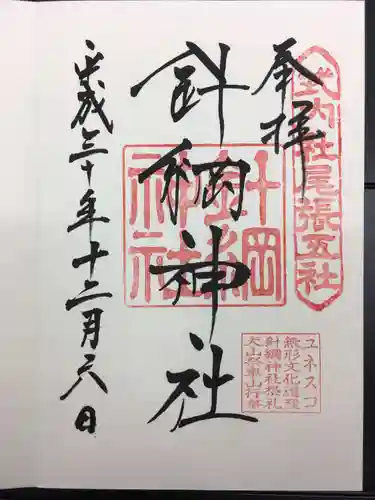 式内社尾張五社
奉拝
針綱神社
針綱神社
平成三十年十二月六日
ユネスコ
無形文化遺産
針綱神社祭礼
犬山祭車山行事